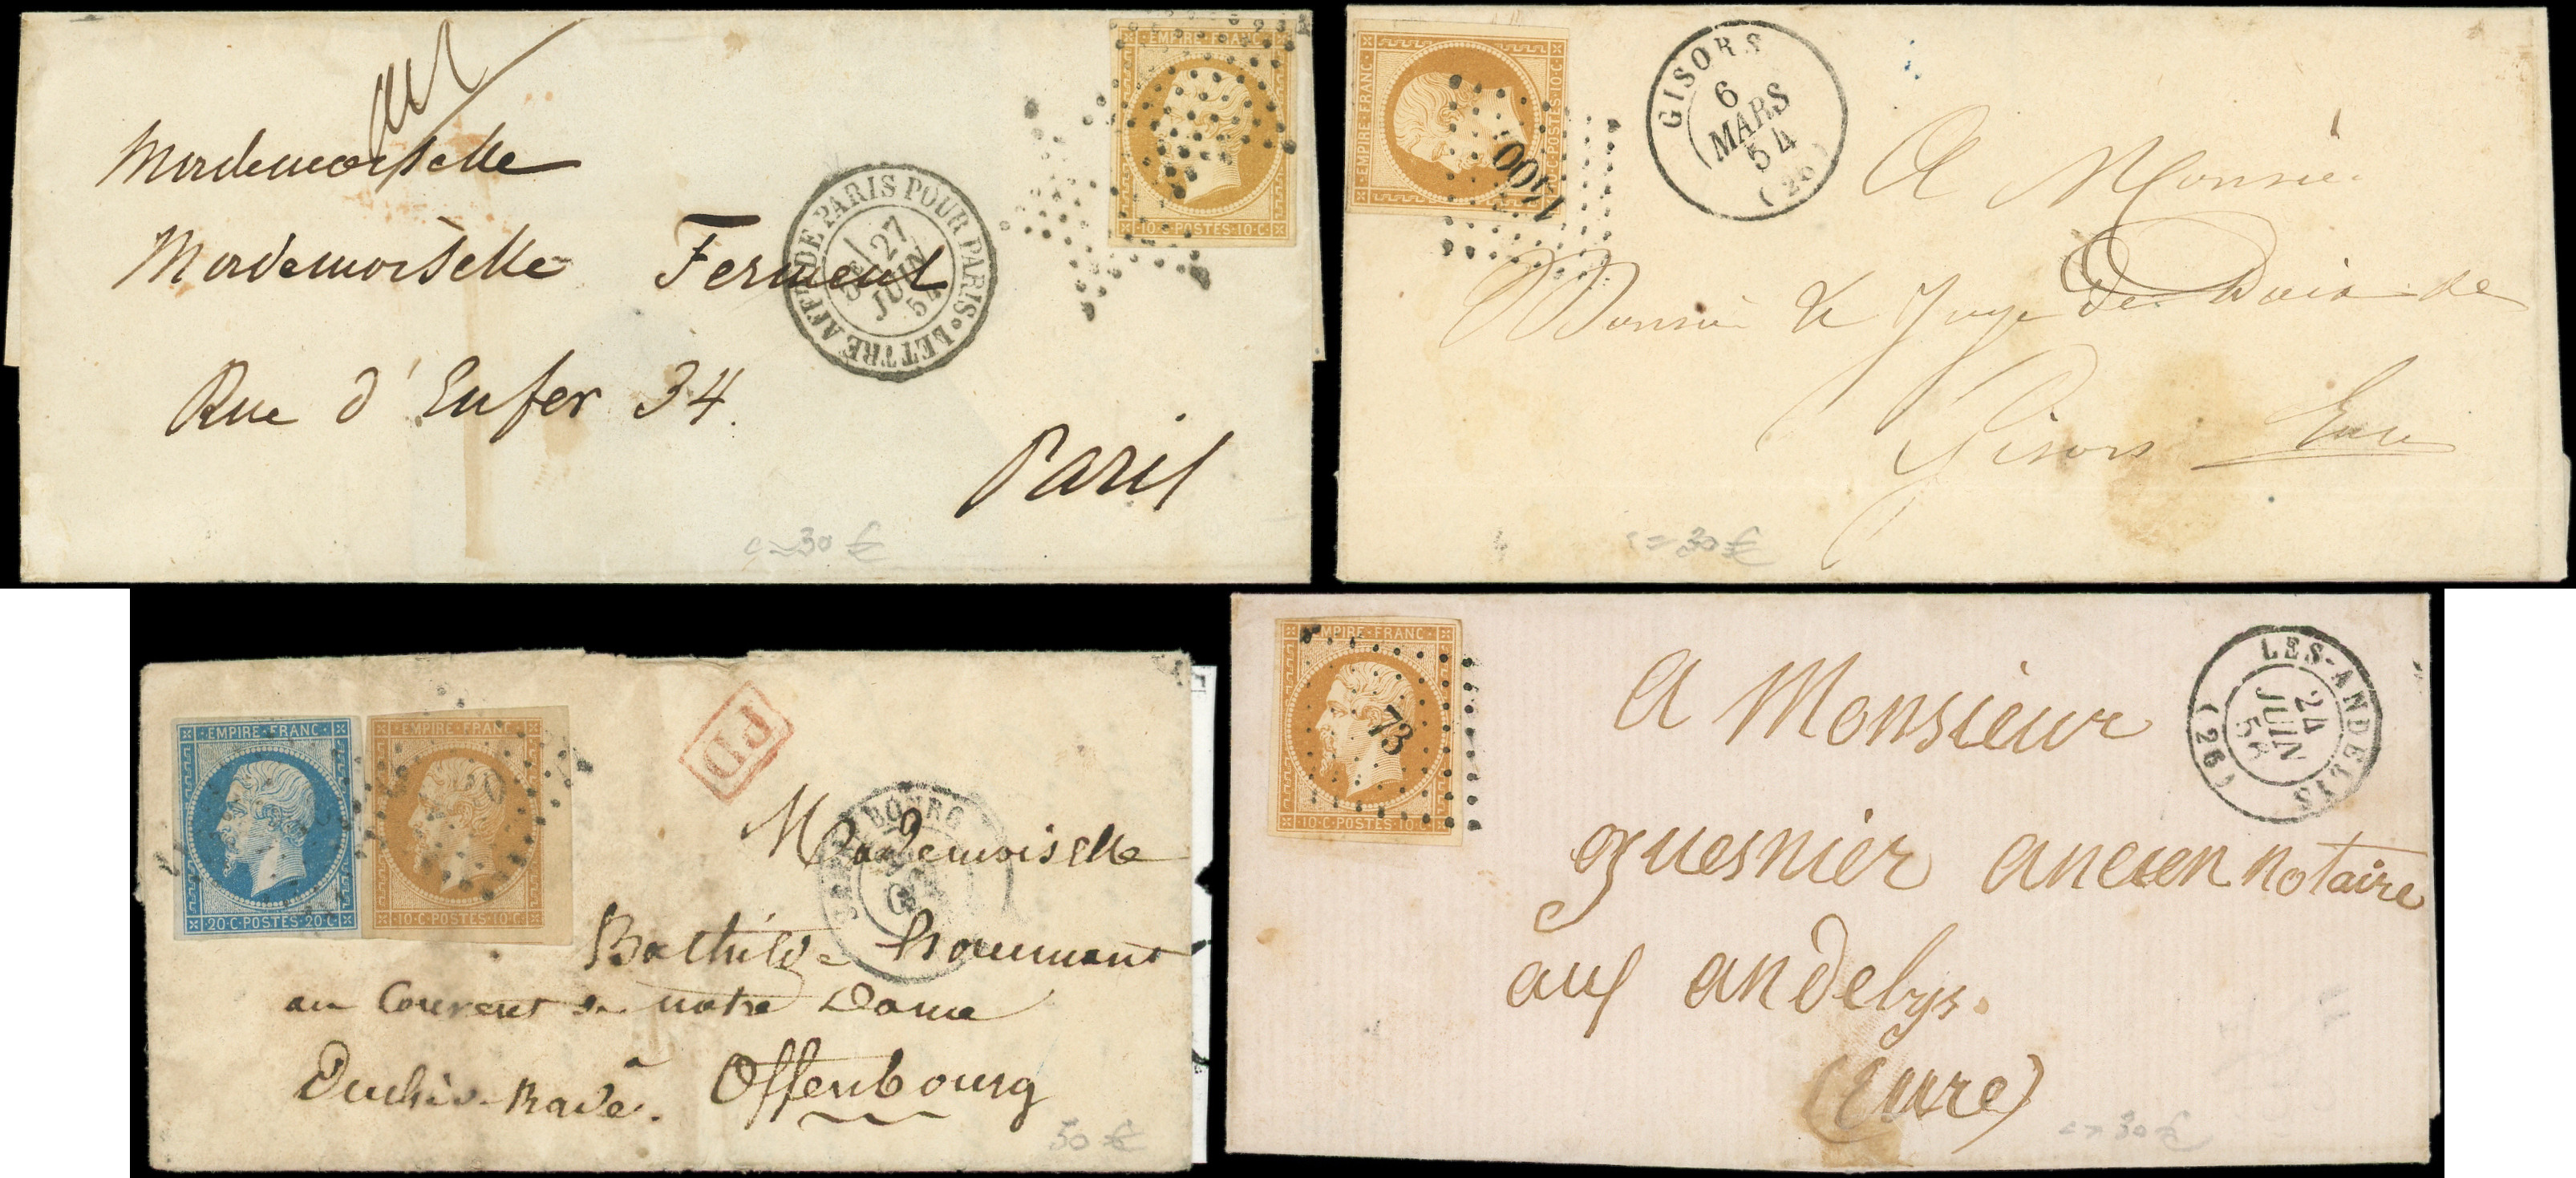 EMPIRE·FRANC·
10·C·POSTES·10·C
Mademoiselle
Mademoiselle Ferment
Rue d'Enfer 34.
Paris
AFF. DE PARIS POUR PARIS · LETTRE
27
JUIN
54
30 €
EMPIRE·FRANC·
10·C·POSTES·10·C
1400
GISORS
6
MARS
54
(26)
A Monsieur
Monsieur le Juge de Paix de
Gisors Eure
30 €
EMPIRE·FRANC·
20·C·POSTES·20·C
EMPIRE·FRANC·
10·C·POSTES·10·C
PD
Mademoiselle
Bathilde
au Couvent de notre Dame
Offenbourg
Duché-Bade.
50 €
EMPIRE·FRANC·
10·C·POSTES·10·C
73
LES-ANDELYS
24
JUIN
(26)
A Monsieur
guesnier ancien notaire
aux andelys.
(Eure)
30 €